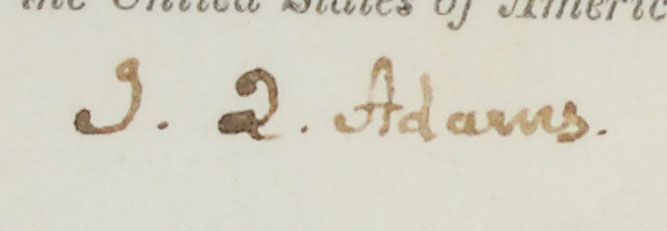 the United States of Americ
J. Q. Adams.